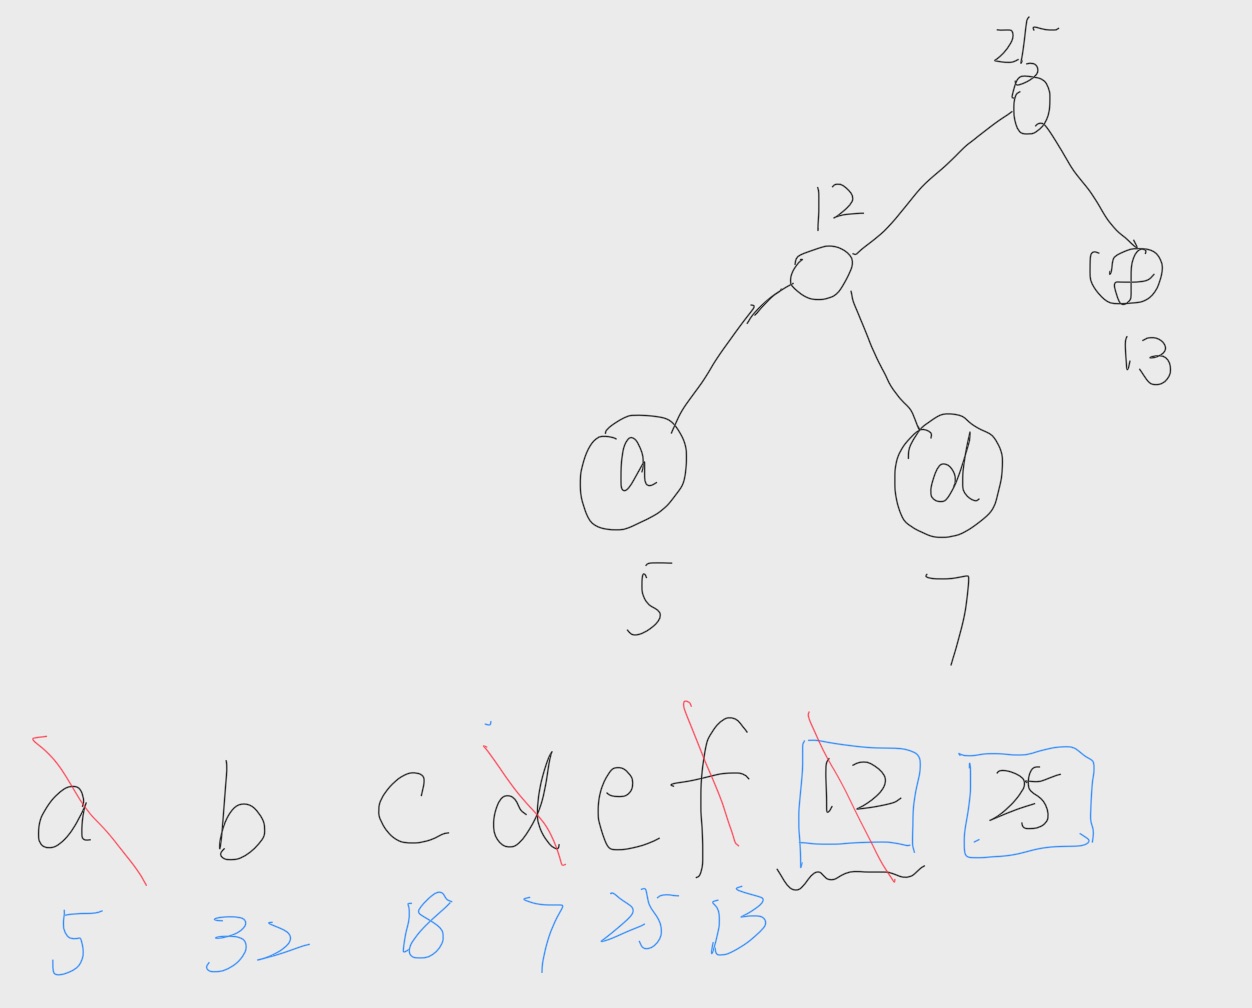 25
12
f
13
a d
5 7
a b c d e f 12 25
5 32 18 7 25 13